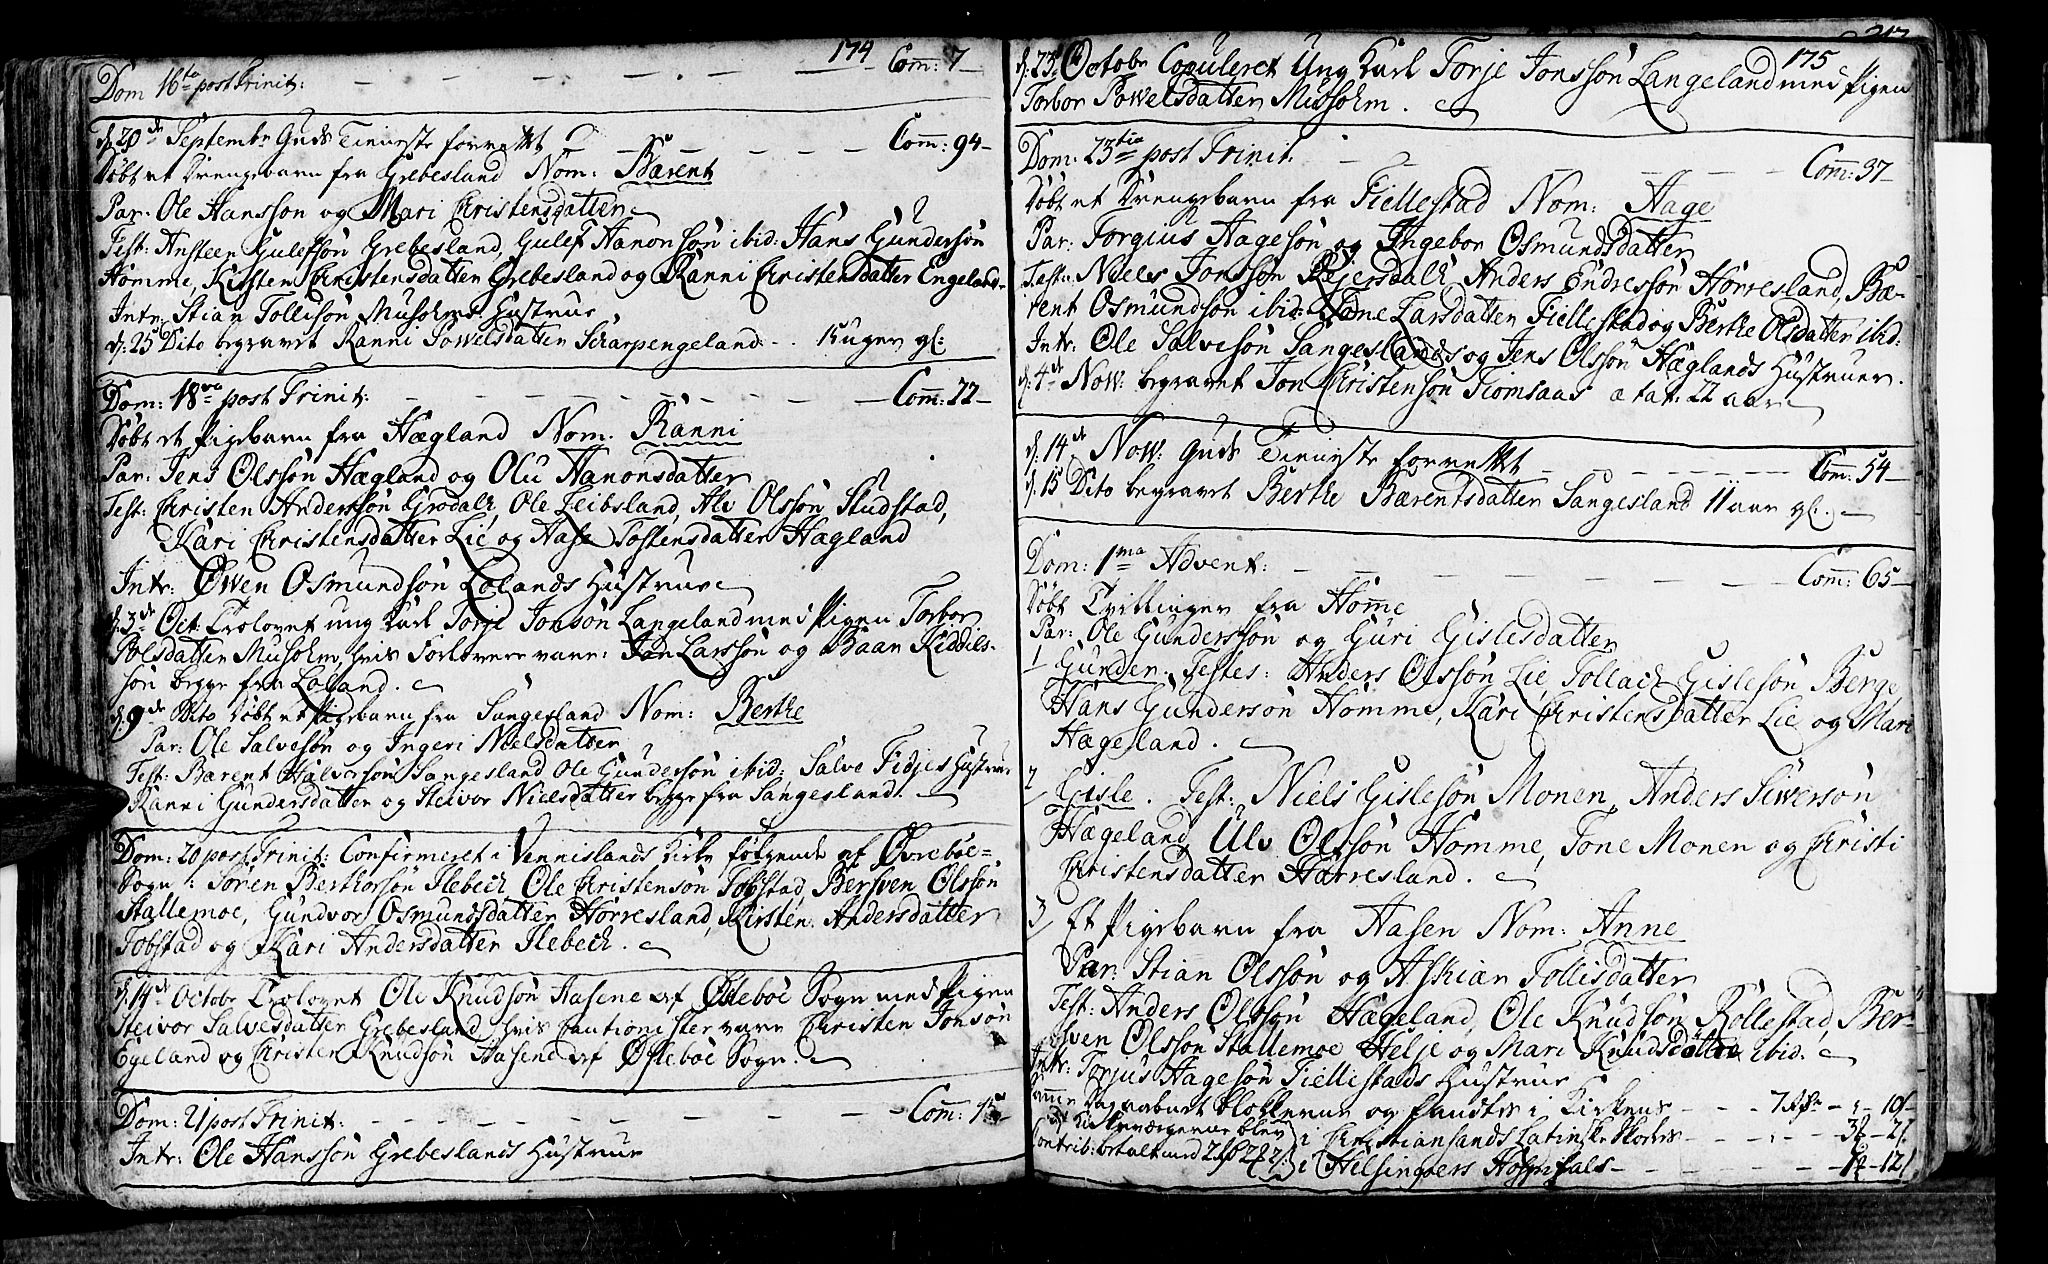 174
Dom 16te post Trinit: Com: 7
d: 20de Septembr Guds Tieneste forrettet Com: 94
Døbt et Drengebarn fra Grebesland Nom: Bærent
Par: Ole Hansson og Mari Christensdatter
Test: Ansteen Gulefson Grebesland, Gulef Hanonson ibid: Hans Gunderson
Homme, Kirsten Christensdatter Grebesland og Ranni Christensdatter Engeland
Intr: Stian Tollison Musolms Hustrue
d: 25 Dito begravet Ranni Powelsdatter Scharpengeland uger gl:
Dom: 18va post Trinit: Com: 22
Døbt et Pigebarn fra Hægland Nom: Ranni
Par: Jens Olsson Hægland og Olu Hanonsdatter
Test: Christen Andersson Grodalk, Ole Leibsland, Alv Olsson Studstad,
Kari Christensdatter Lie og Aase Tostensdatter Hagland
Intr: Øwen Osmundson Lolands Hustrue
d: 3de Oct: Trolovet ung Karl Torje Jonson Langeland med Pigen Torbor
Polsdatter Musolm, hvis Forlovere vare: Jon Larsson og Baar Kiddils-
son begge fra Loland.
d: 9de Dito døbt et Pigebarn fra Sangesland Nom: Berthe
Par: Ole Salveson og Ingeri Nielsdatter
Test: Barent Halvorson Sangesland Ole Gunderson ibid: Salve Fidjes Hustrue
Ranni Gundersdatter og Steivor Nielsdatter begge fra Sangesland.
Dom: 20 post Trinit: Confirmeret i Vennislands Kirke følgende af Øvreboe-
Sogn: Søren Berthorson Ilebeck, Ole Christenson Tobstad, Bersven Olsson
Stallemoe, Gundvor Osmundsdatter Horresland, Kirsten Andersdatter
Tobstad og Kari Andersdatter Ilebeck.
d: 14de Octobr Trolovet Ole Knudson Aasene af Øileboe Sogn med Pigen
Steivor Salvesdatter Grebesland, hvis Cautionister vare Christen Jonson
Egeland og Christen Knudson Aasene af Øisleboe Sogn.
Dom: 21 post Trinit: Com:
Intr: Ole Hansson Grebeslands Hustrue
175
d: 23 Octobr Copuleret Ung Karl Torje Jonsson Langeland med Pigen
Torbor Powelsdatter Musholm.
Dom: 23tia post Trinit. Com: 37
Døbt et Drengebarn fra Fiellestad Nom: Aage
Par: Torgius Aageson og Ingebor Osmundsdatter
Test: Niels Jonsson Anders Endresson Horresland, Bæ-
rent Osmundson ibid: Tone Larsdatter Fiellestad og Berthe Olsdatter ibid:
Intr: Ole Salveson Sangeslands og Jens Olsson Hæglands Hustruer.
d: 4de Now: begravet Jon Christenson Fiomsaas ætat: 22 aar
d: 14de Now: Guds Tieneste forrettet Com: 54
d: 15 Dito begravet Berthe Bærentsdatter Sangesland 11 aar gl:
Dom: 1ma Advent: Com: 65
Døbt Tvillinger fra Home
Par: Ole Gundersson og Guri Gislesdatter
1 Gunder. Testes: Anders Olsson Lie, Tollack Gisleson Berge
Hans Gunderson Homme, Kari Christensdatter Lie og Mari
Hægeland.
2 Gisle. Test: Niels Gisleson Monen, Anders Siwerson
Hægeland, Ulv Olsson Homme, Tone Monen og Christi
Christensdatter Harresland.
3 Et Pigebarn fra Aasen Nom: Anne
Par: Stian Olsson og Askian Tollisdatter
Test: Anders Olsson Hægeland, Ole Knudson Rollestad, Ber-
sven Olsson Stallemoe, Helje og Mari Knudsdatter ibid.
Intr: Torjus Aageson Fiellestads Hustrue
samme Dag aabnet Blokkerne og fandtes i Kirkens 10
af Kirkeværgerne blev i Christiansands Latinske Skoles 2
Contrib: betalt med i Helsingøers Hospitals 12